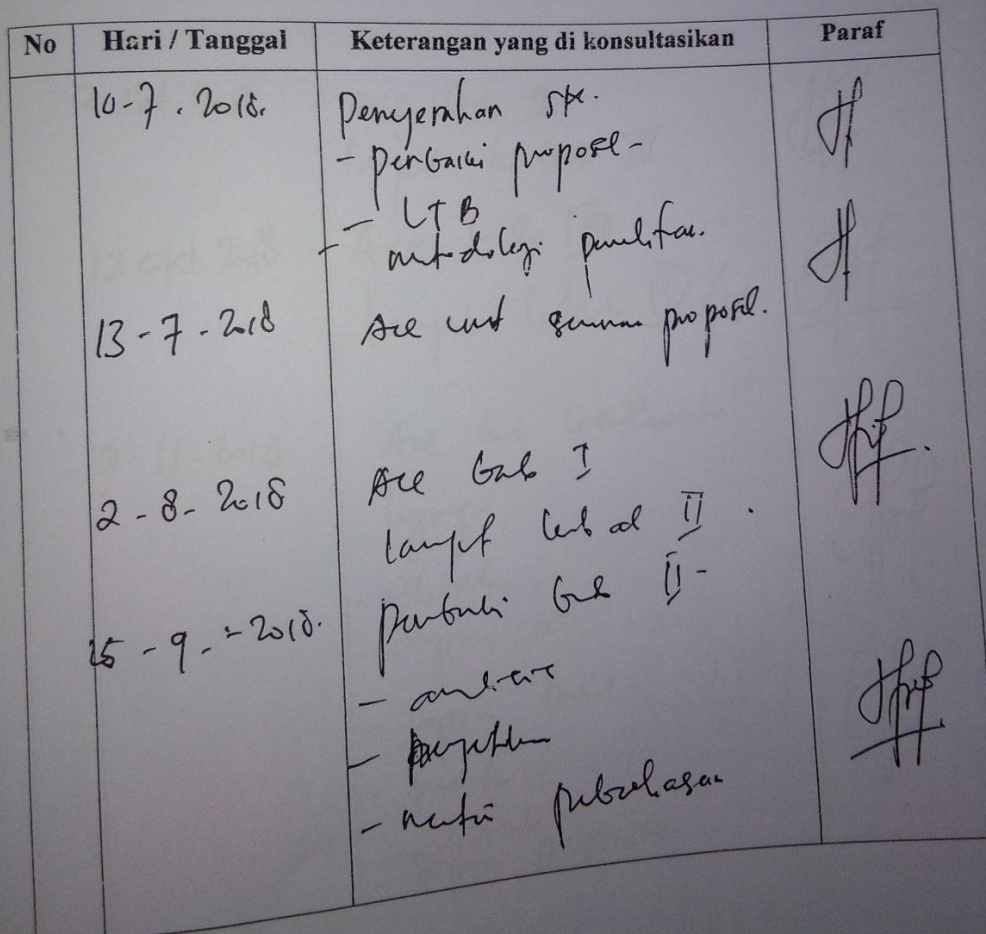 No Hari / Tanggal Keterangan yang di konsultasikan Paraf
10-7.2018. Penyerahan SK.
- perbaiki proposal -
- LTB
- metodologi penelitian.
13-7-2018 Acc unt seminar proposal.
2-8-2018 Acc bab I
lanjut bab II.
25-9-2018. perbaiki bab II -
-
-
- materi pembahasan